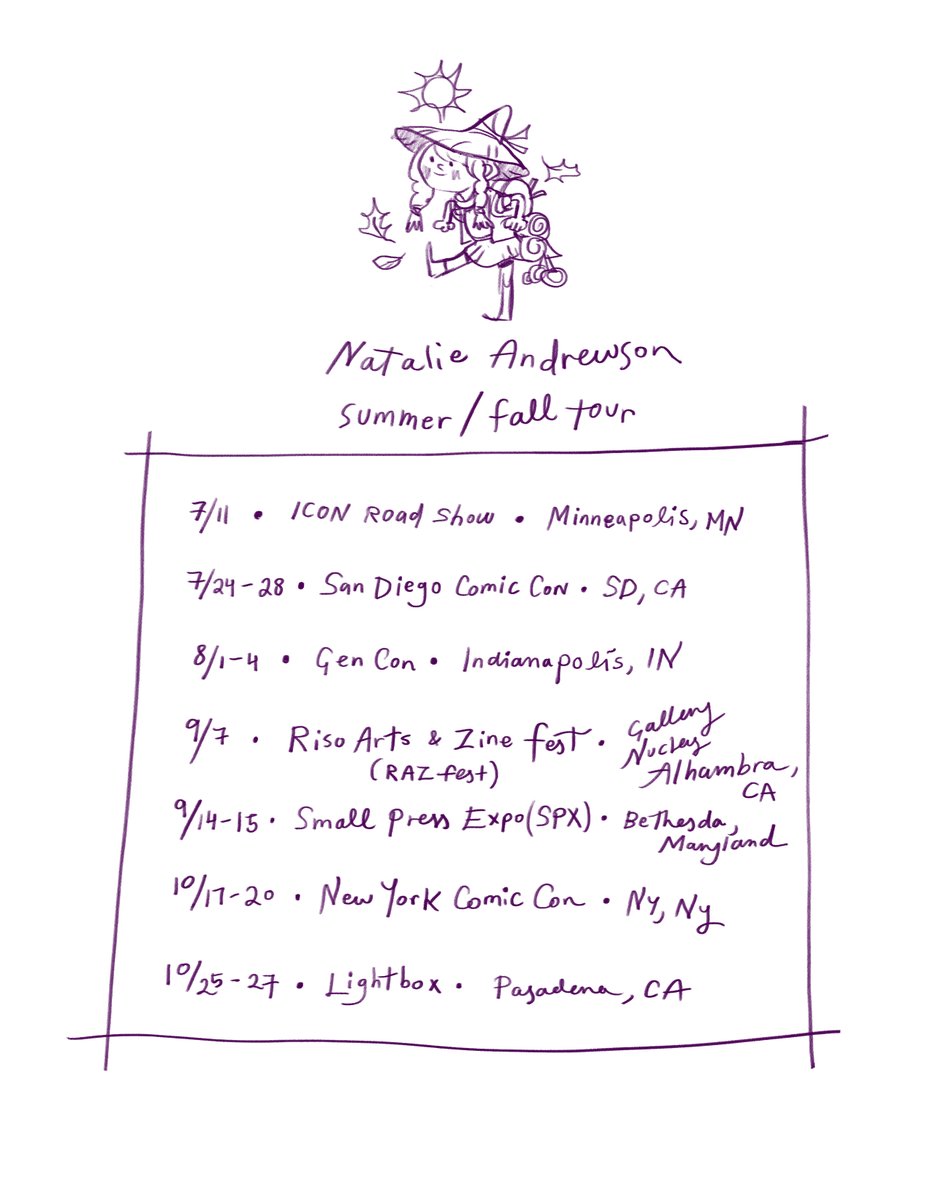 Natalie Andrewson
summer/fall tour
7/11 • ICON Road Show • Minneapolis, MN
7/24-28 • San Diego Comic Con • SD, CA
8/1-4 • Gen Con • Indianapolis, IN
9/7 • Riso Arts & Zine fest • Gallery
Nucleus
(RAZ fest) Alhambra,
CA
9/14-15 • Small Press Expo (SPX) • Bethesda,
Maryland
10/17-20 • New York Comic Con • NY, NY
10/25-27 • Lightbox • Pasadena, CA